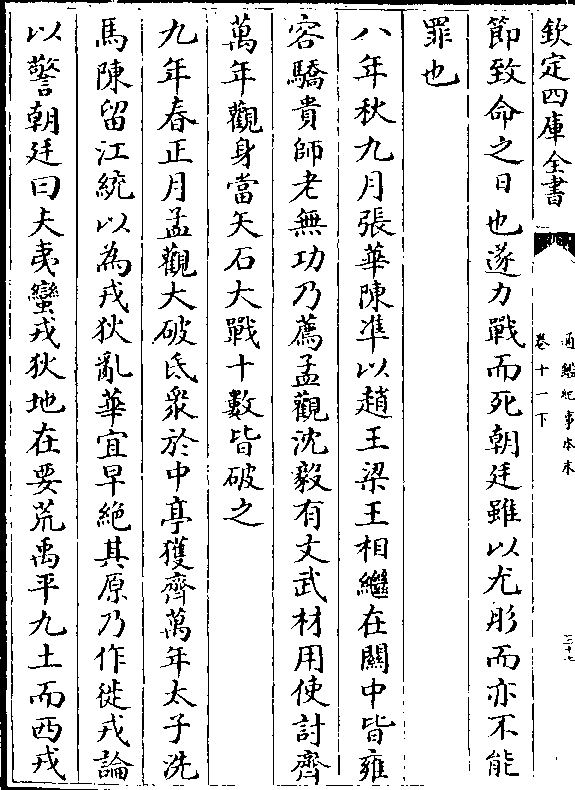 欽定四庫全書
通鑑紀事本末
卷十一下
三十七
節致命之日也遂力戰而死朝廷雖以尤肜而亦不能
罪也
八年秋九月張華陳準以趙王梁王相繼在關中皆雍
容驕貴師老無功乃薦孟觀沈毅有文武材用使討齊
萬年觀身當矢石大戰十數皆破之
九年春正月孟觀大破氐衆於中亭獲齊萬年太子洗
馬陳留江統以為戎狄亂華宜早絶其原乃作徙戎論
以警朝廷曰夫夷蠻戎狄地在要荒禹平九土而西戎